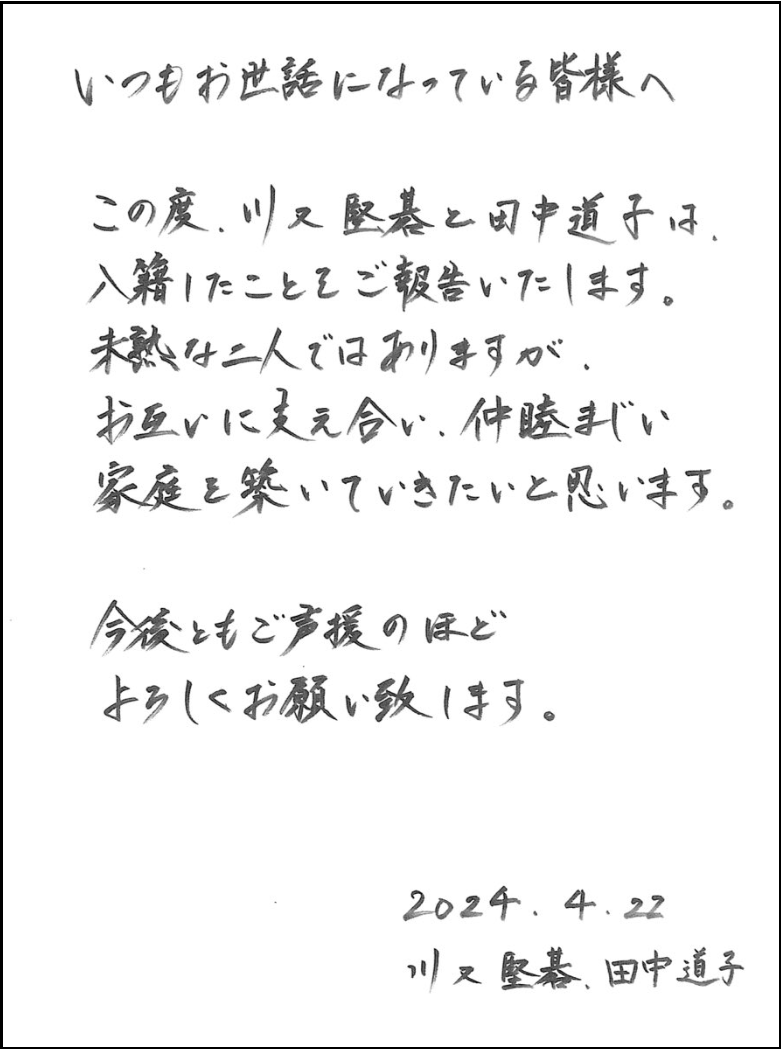 いつもお世話になっている皆様へ
この度、川又堅碁と田中道子は、
入籍したことをご報告いたします。
未熟な二人ではありますが、
お互いに支え合い、仲睦まじい
家庭を築いていきたいと思います。
今後ともご声援のほど
よろしくお願い致します。
2024.4.22
川又堅碁、田中道子